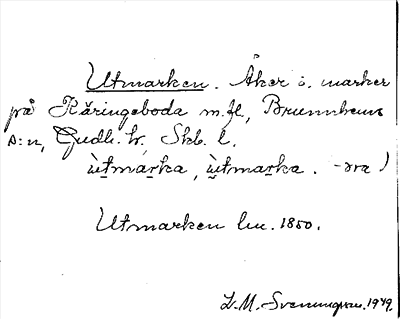 Utmarken. Åker o. marker
på Käringeboda m.fl., Brunnhems
s:n, Gudh. h., Skb. l.
ùtmárka, ùtmarka. -ɔra)
Utmarken lm. 1850.
D. M. Svenungsson. 1949.